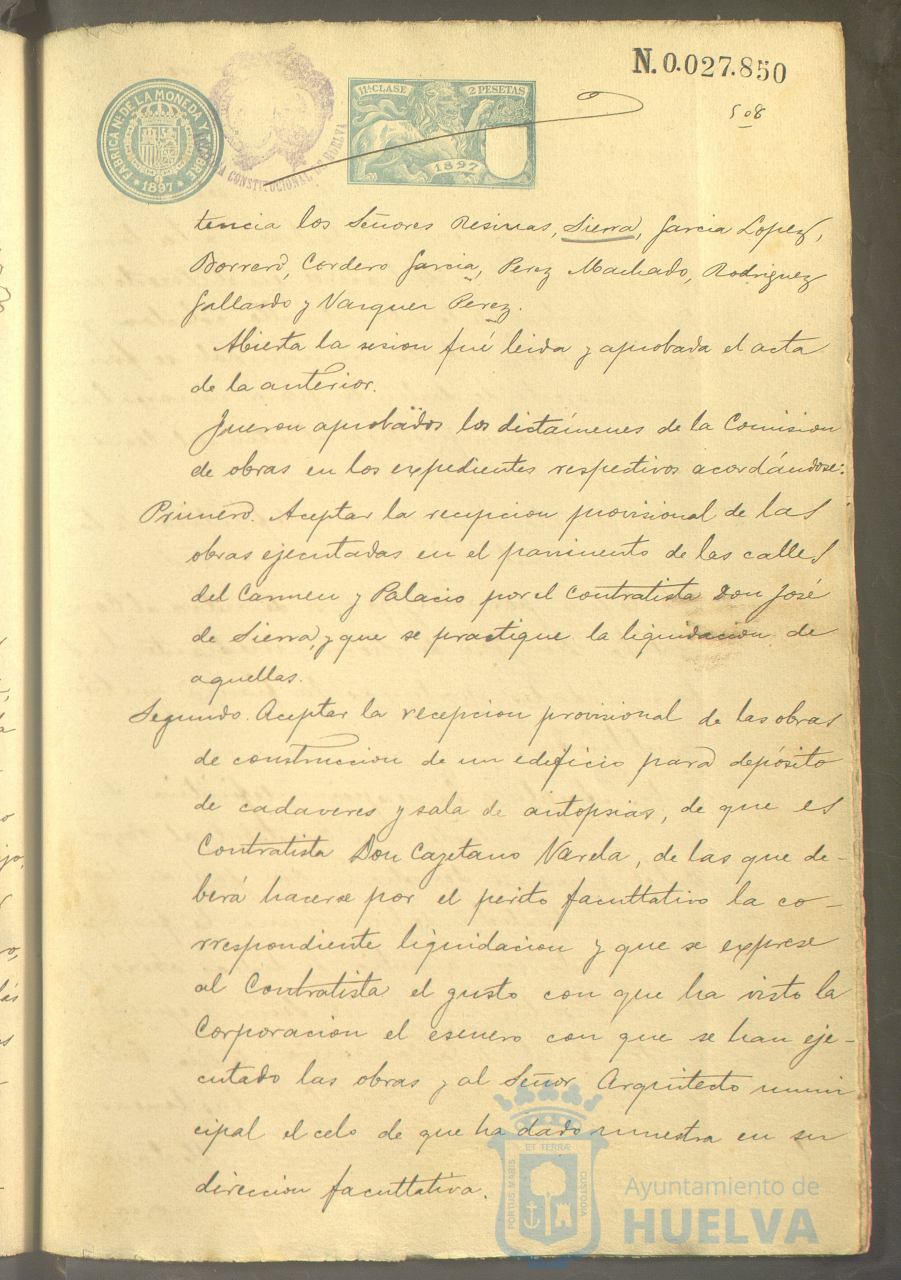 N. 0.027.850
508
FABRICA NAL DE LA MONEDA Y TIMBRE
* 1897 *
CONSTITUCIONAL DE HUELVA
11ª CLASE 2 PESETAS
1897
tencia los Señores Resinas, Sierra, Garcia Lopez,
Borrero, Cordero Garcia, Perez Machado, Rodriguez
Gallardo y Vazquez Perez.
Abierta la sesion fué leida y aprobada el acta
de la anterior.
Fueron aprobados los dictámenes de la Comision
de obras en los expedientes respectivos acordándose:
Primero. Aceptar la recepcion provisional de las
obras ejecutadas en el pavimento de las calles
del Carmen y Palacio por el Contratista Don José
de Sierra, y que se practique la liquidacion de
aquellas.
Segundo. Aceptar la recepcion provisional de las obras
de construccion de un edificio para depósito
de cadaveres y sala de autopsias, de que es
Contratista Don Cayetano Varela, de las que de-
berá hacerse por el perito facultativo la co-
rrespondiente liquidacion y que se exprese
al Contratista el gusto con que ha visto la
Corporacion el esmero con que se han eje-
cutado las obras y al Señor Arquitecto muni
cipal el celo de que ha dado muestra en su
direccion facultativa.
PORTUS MARIS
ET TERRÆ
CUSTODIA
Ayuntamiento de
HUELVA